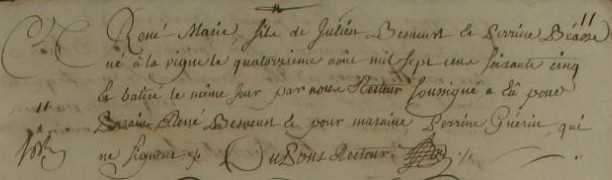 René Marie, fils de Julien Besneust et Perrine Béasse
né à la vigne le quatorzieme aout mil sept cens soixante cinq
et batisé le même jour par nous Recteur soussigné a Eû pour
Paraine René Besneust et pour maraine Perrine Guérin, qui
ne signent Recteur